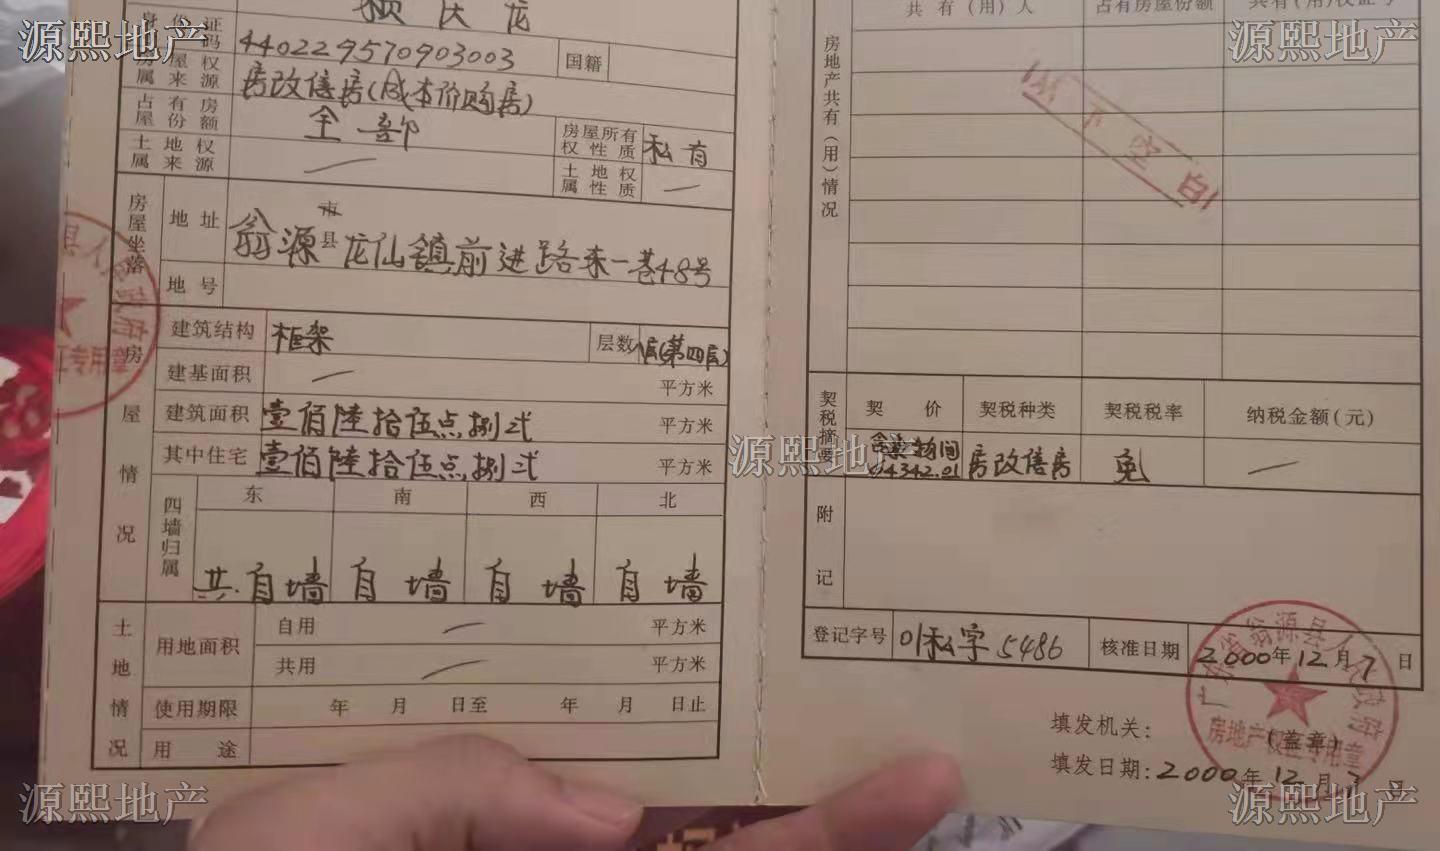 源熙地产
源熙地产
身份证
号码
440229570903003
国籍
房屋权
属来源
房改售房(成本价购房)
占有房
屋份额
全部
房屋所有
权性质
私有
土地权
属来源
—
土地权
属性质
—
房屋坐落
地址
翁源县龙仙镇前进路东一巷48号
地号
房屋情况
建筑结构
框架
层数
八层(第四层)
建基面积
—
平方米
建筑面积
壹佰陆拾伍点捌弍
平方米
其中住宅
壹佰陆拾伍点捌弍
平方米
四墙归属
东 南 西 北
共自墙 自墙 自墙 自墙
土地情况
用地面积
自用 — 平方米
共用 — 平方米
使用期限
年 月 日至 年 月 日止
用途
共有(用)人
占有房屋份额
房地产共有(用)情况
以下空白
契税摘要
契价
契税种类
契税税率
纳税金额(元)
房改售房
免
—
源熙地产
附记
登记字号
01私字5486
核准日期
2000年12月7日
填发机关:
(盖章)
填发日期:2000年12月7日
广东省翁源县人民政府
房地产权证专用章
源熙地产
源熙地产